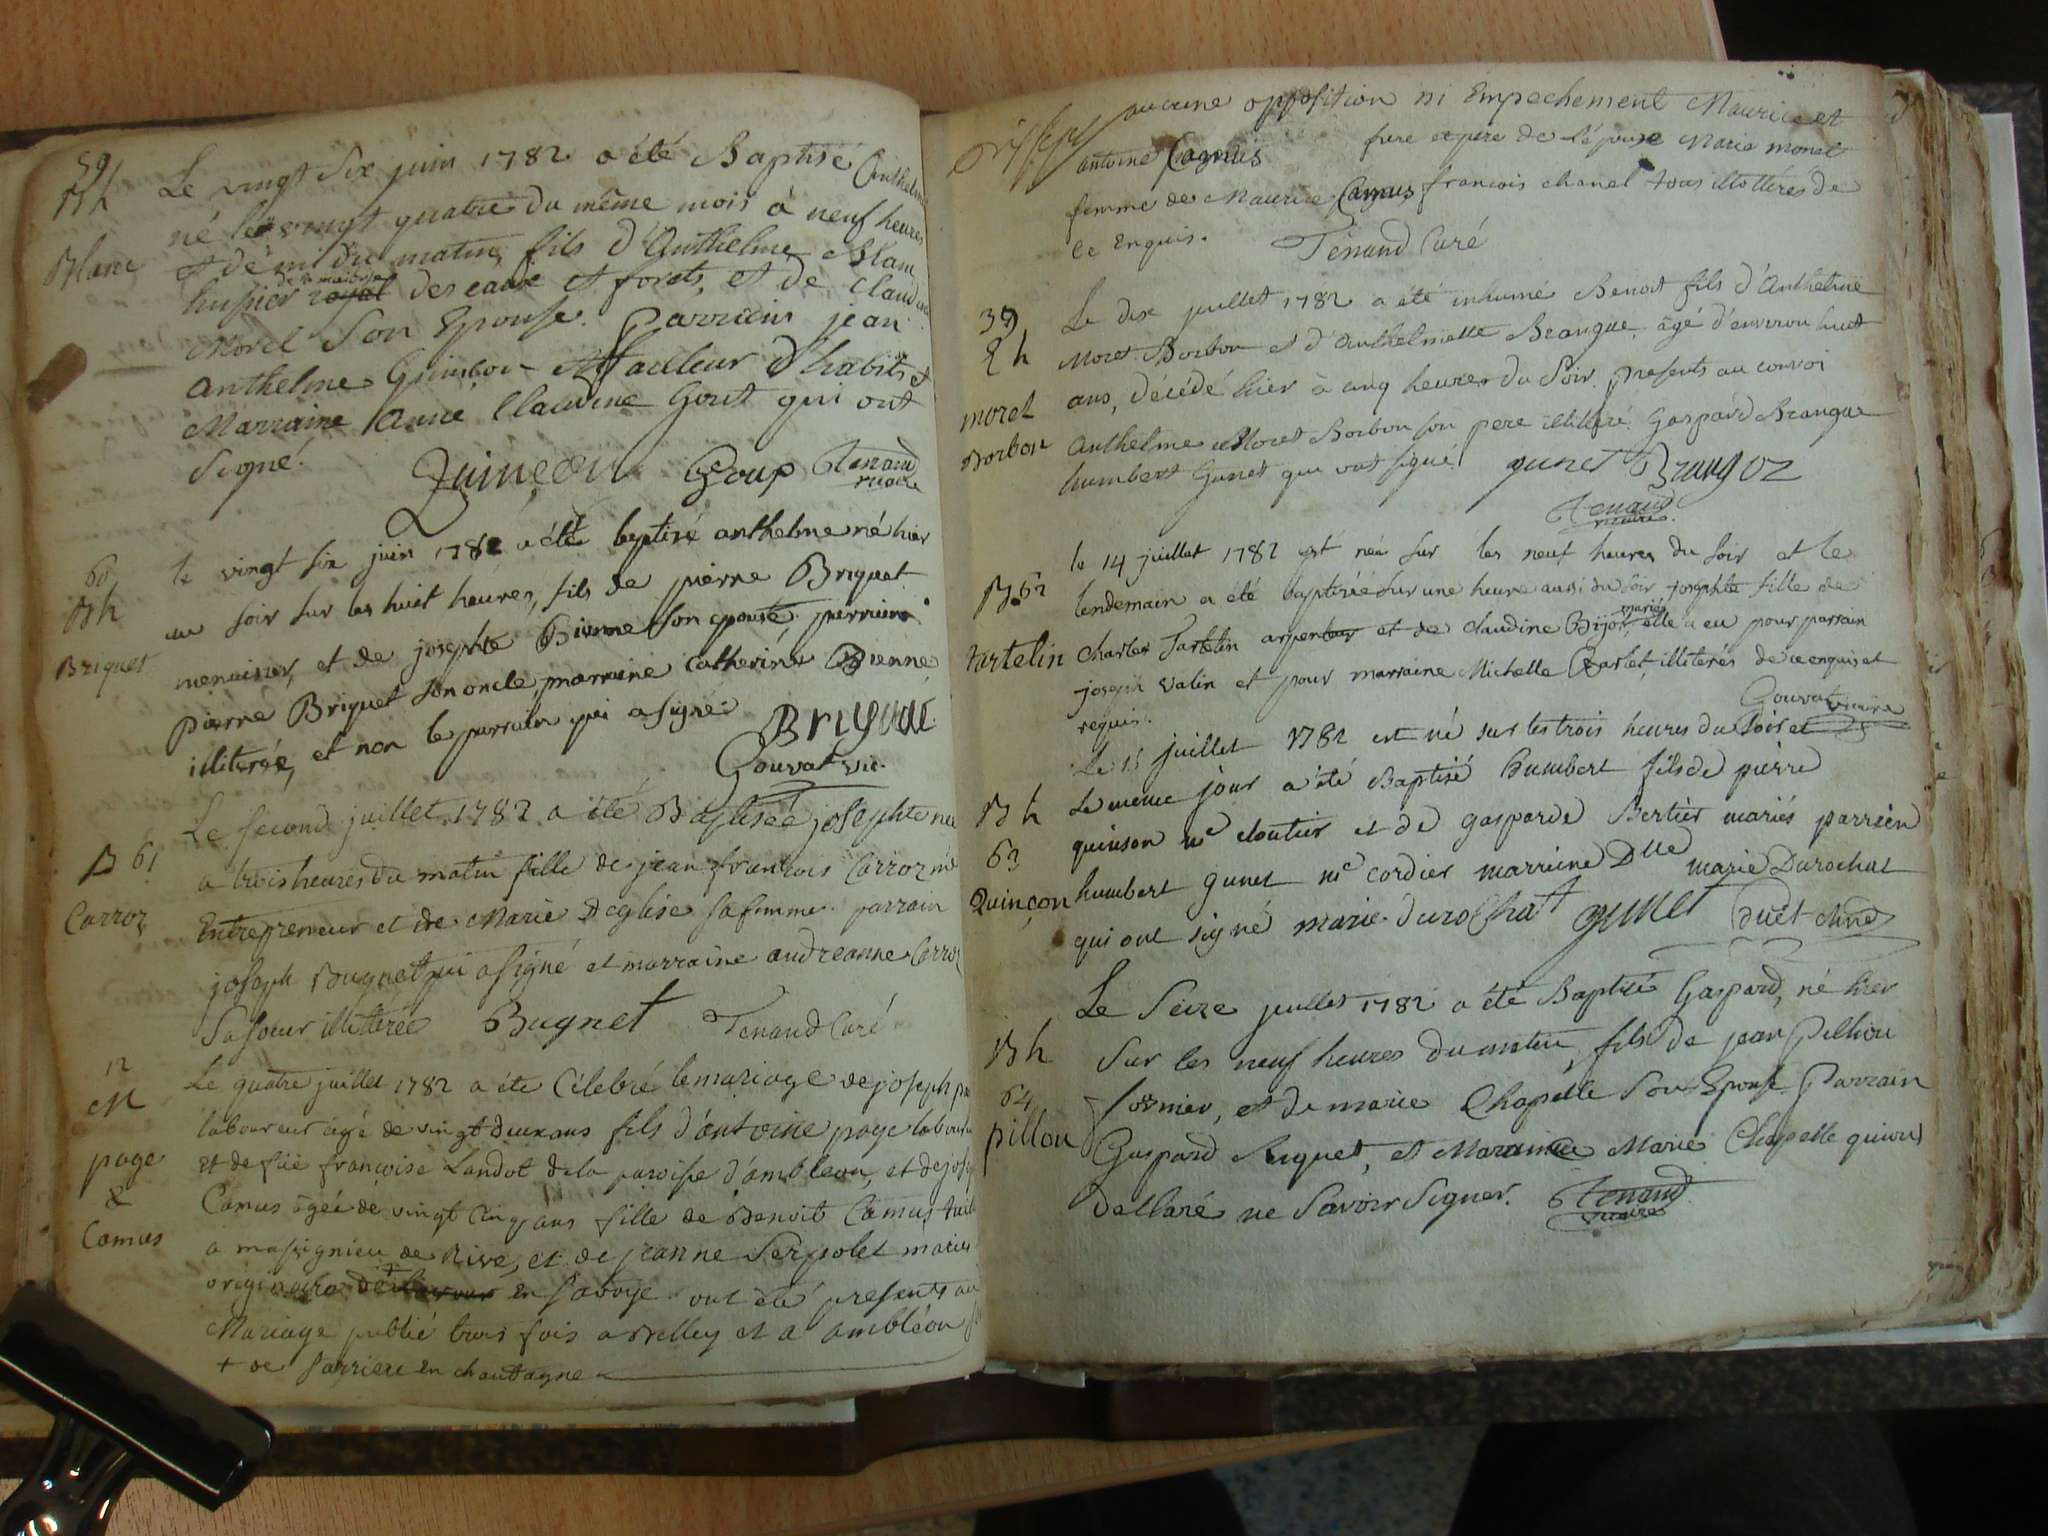 59
Bh
Blanc
Le vingt Six juin 1782 a été Baptisé Anthelme
né le vingt quatre du même mois à neuf heures
et demi du matin, fils d'Anthelme Blanc
huissier royal de la maitrise des eaux et forets, et de Claudine
Morel Son Epouse. Parrain jean
Anthelme tailleur d'habits et
Marraine Anne Claudine Gout qui ont
Signé.
Goup Tenand
vicaire
60
Bh
Briquet
le vingt six juin 1782 a été baptisé anthelme né hier
au soir sur les huit heures, fils de pierre Briquet
menuisier, et de josephte Bienne son epouse, parrain
pierre Briquet son oncle, marraine Catherine Bienne
illiterée, et non le parrain qui a signé. Briquet
Gouvat vic.
B 61
Carroz
Le second juillet 1782 a été Baptisée josephte née
a trois heures du matin fille de jean françois Carroz me
Entrepreneur et de Marie Deglise sa femme. parrain
joseph Bugnet qui a signé et marraine andreanne Carroz
Sa soeur illitterée Bugnet Tenand Curé
12
M
page
&
Camus
Le quatre juillet 1782 a été Célebré le mariage de joseph page
laboureur agé de vingt deux ans fils d'antoine page laboureur
et de füe françoise Landot de la paroisse d'ambleon, et de josephte
Camus agée de vingt Cinq ans fille de Benoit Camus
a massignieu de Rive, et de jeanne Serpolet mariés
originaire de + en Savoye ont été presents au
Mariage publié trois fois a Belley et a ambléon
+ de Sarriere en chautagne
aucune opposition ni Empechement Maurice et
antoine Camus frere et pere de L'épouse Marie monet
femme de Maurice Camus françois chanel tous illitteres de
ce Enquis. Tenand Curé
39
Sh
moret
Borbon
Le dix juillet 1782 a été inhumé Benoit fils d'Anthelme
Moret Borbon et d'Anthelmette Brangue, âgé d'environ huit
ans, décédé hier à cinq heures du Soir. Presents au convoi
Anthelme Moret Borbon son pere illitéré, Gaspard Brangue
humbert Gunet qui ont signé. gunet Brangoz
Tenand
vicaire.
B. 62
tartelin
le 14 juillet 1782 est née sur les neuf heures du soir et le
lendemain a été baptisée sur une heure aussi du soir josephte fille de
Charles Tartelin arpenteur et de claudine Bijot, mariés elle a eu pour parrain
joseph Valin et pour marraine Michelle Carlet, illiterés de ce enquis et
requis. Gouvat vicaire
Bh
63
Quinçon
Le 15 juillet 1782 est né sur les trois heures du soir et
Le meme jour a été Baptisé humbert fils de pierre
quinson me cloutier et de gasparde Bertier mariés parrein
humbert gunet me cordier marreine Dlle marie Durochat
qui ont signé marie durochatt gunet
Bh
64
pillou
Le Seize juillet 1782 a été Baptisé Gaspard, né hier
sur les neuf heures du matin, fils de jean Pilliou
fornier, et de marie Chapelle Son Epouse. Parrain
Gaspard Huguet, et Marraine Marie Chapelle qui ont
déclaré ne Savoir Signer. Tenand
vicaire